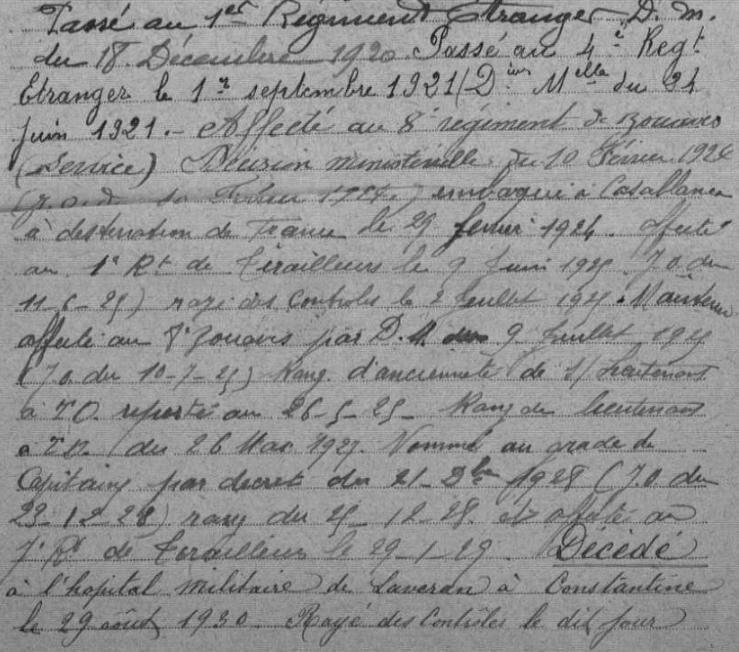 Passé au 1er Régiment Etranger D. M.
du 18 Décembre 1920 Passé au 4e Regt
Etranger le 1er septembre 1921 (Don Melle du 24
juin 1921. - Affecté au 8e régiment de zouaves
(Service) Décision ministérielle du 10 Février 1924
(J.O. du embarqué à Casablanca
à destination de France le 29 février 1924. affecté
au 1e Rt de Tirailleurs le 9 Juin 1925 J.O. du
11-6-25) rayé des Contrôles le 2 Juillet 1925. Maintenu
affecté au 8e Zouaves par D.M. du 9 Juillet 1925
(J.O. du 10-7-25) Rang d'ancienneté de S/Lieutenant
à T.O. reporté au 26-5-25 - Rang de lieutenant
à T.D. du 26 Mai 1927. Nommé au grade de
Capitaine par decret du 21 Dbre 1928 (J.O. du
23-12-28) rang du 25-12-28. et affecté au
7e Rt de Tirailleurs le 29-1-29 Décédé
à l'hopital militaire de Laveran à Constantine
le 29 août 1930. Rayé des Contrôles le dit jour